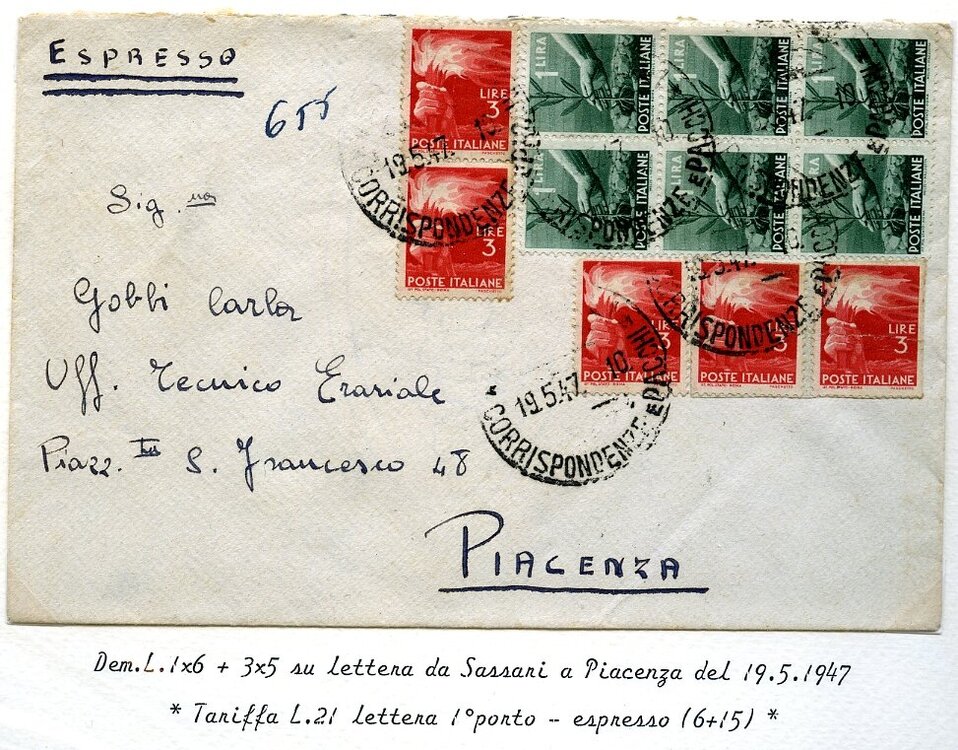 ESPRESSO
655
LIRE
3
POSTE ITALIANE
LIRE
3
POSTE ITALIANE
1 LIRA
POSTE ITALIANE
1 LIRA
POSTE ITALIANE
1 LIRA
POSTE ITALIANE
1 LIRA
POSTE ITALIANE
POSTE ITALIANE
POSTE ITALIANE
LIRE
3
POSTE ITALIANE
LIRE
3
POSTE ITALIANE
LIRE
3
POSTE ITALIANE
19.5.47. 10
CORRISPONDENZE E PACCHI
19.5.47. 10
CORRISPONDENZE E PACCHI
19.5.47. 10
CORRISPONDENZE E PACCHI
Sig.na
Gobbi Carla
Uff. Tecnico Erariale
S. Francesco 48
PIACENZA
Dem.L.1x6 + 3x5 su lettera da Sassari a Piacenza del 19.5.1947
* Tariffa L.21 lettera 1°porto - espresso (6+15) *